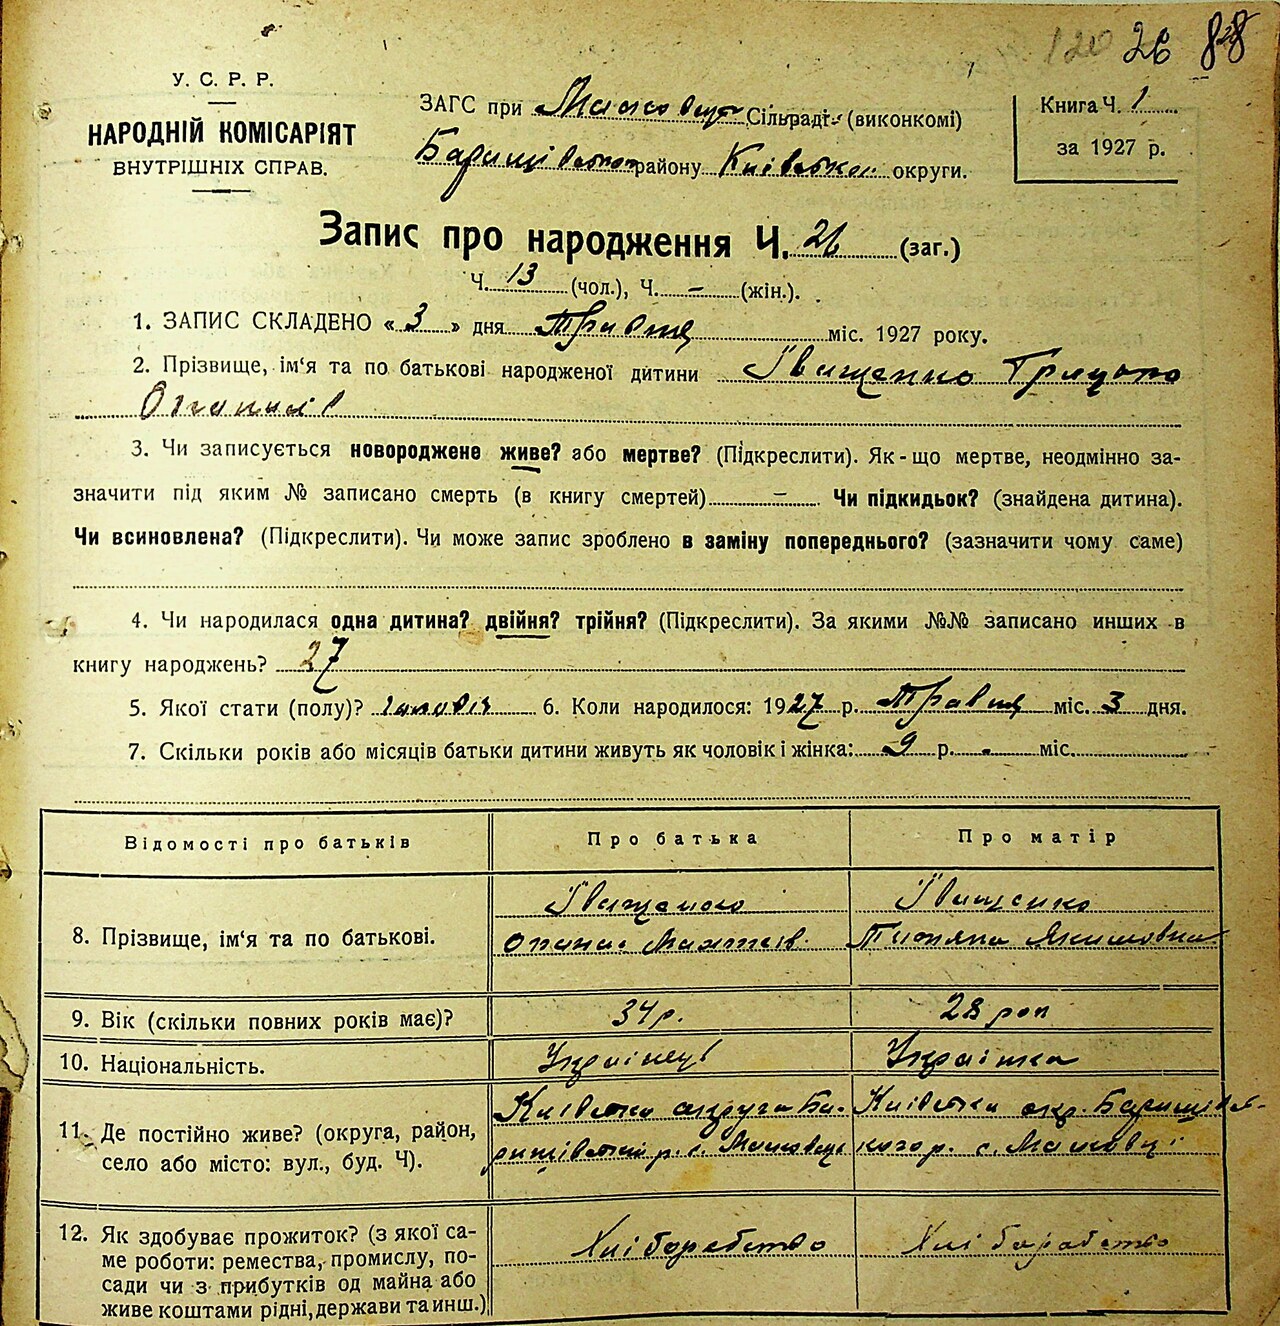 120 26 88
У. С. Р. Р.
НАРОДНІЙ КОМІСАРІЯТ
ВНУТРІШНІХ СПРАВ.
ЗАГС при Масковецк Сільраді (виконкомі)
Баришівськом району Київської округи.
Книга Ч. 1
за 1927 р.
Запис про народження Ч. 26 (заг.)
Ч. 13 (чол.), Ч. - (жін.).
1. ЗАПИС СКЛАДЕНО « 3 » дня Травця міс. 1927 року.
2. Прізвище, ім'я та по батькові народженої дитини Іващенко Грицько
Опанасів
3. Чи записується новороджене живе? або мертве? (Підкреслити). Як-що мертве, неодмінно за-
значити під яким № записано смерть (в книгу смертей) - Чи підкидьок? (знайдена дитина).
Чи всиновлена? (Підкреслити). Чи може запис зроблено в заміну попереднього? (зазначити чому саме)
4. Чи народилася одна дитина? двійня? трійня? (Підкреслити). За якими №№ записано инших в
книгу народжень? 27
5. Якої стати (полу)? чоловіч 6. Коли народилося: 1927 р. Травця міс. 3 дня.
7. Скільки років або місяців батьки дитини живуть як чоловік і жінка: 9 р. - міс.
Відомості про батьків Про батька Про матір
8. Прізвище, ім'я та по батькові.
Іващенко
Опанас Матвіїв.
Іващенко
Титяна Якимовна
9. Вік (скільки повних років має)? 34 р. 28 рок
10. Національність. Українець Українка
11. Де постійно живе? (округа, район,
село або місто: вул., буд. Ч).
Київська округа Ба-
ришівський р. с. Масковці
Київська окр. Баришівсь-
кого р. с. Масковці
12. Як здобуває прожиток? (з якої са-
ме роботи: ремества, промислу, по-
сади чи з прибутків од майна або
живе коштами рідні, держави та инш.)
Хліборобство
Хліборобство